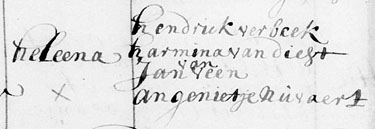 hendrick verbeek
heleena harmina van diest
Jan van Veen
x angenietje Nuvaert